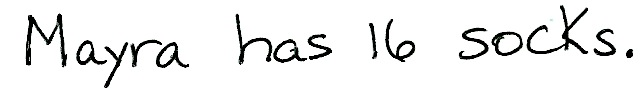 Mayra has 16 socks.